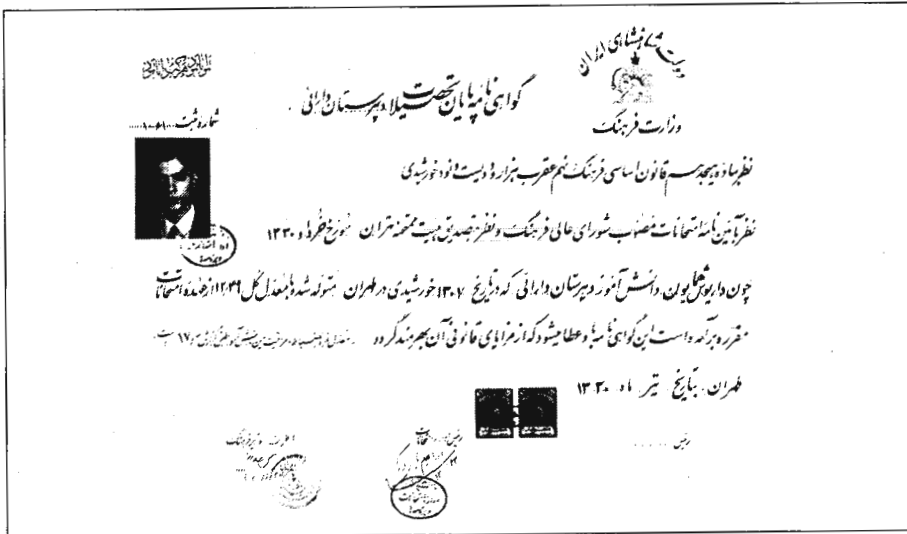 دولت شاهنشاهی ایران
وزارت فرهنگ
گواهی نامه پایان تحصیلات دبیرستان دارائی
شماره ثبت
نظر بماده هیجدهم قانون اساسی فرهنگ نهم عقرب هزار و دویست و نود خورشیدی
نظر بآئین نامه امتحانات مصوب شورای عالی فرهنگ و نظر بتصدیق هیئت ممتحنه تهران مورخ خرداد ۱۳۳۰
چون داریوش همایون دانش آموز دبیرستان دارائی که در تاریخ ۱۳۰۷ خورشیدی در طهران متولد شده با معدل کل ۱۲/۳۹ از عهده امتحانات
مقرره برآمده است این گواهی نامه باو عطا میشود که از مزایای قانونی آن بهره مند گردد
طهران بتاریخ تیر ماه ۱۳۳۰
رئیس